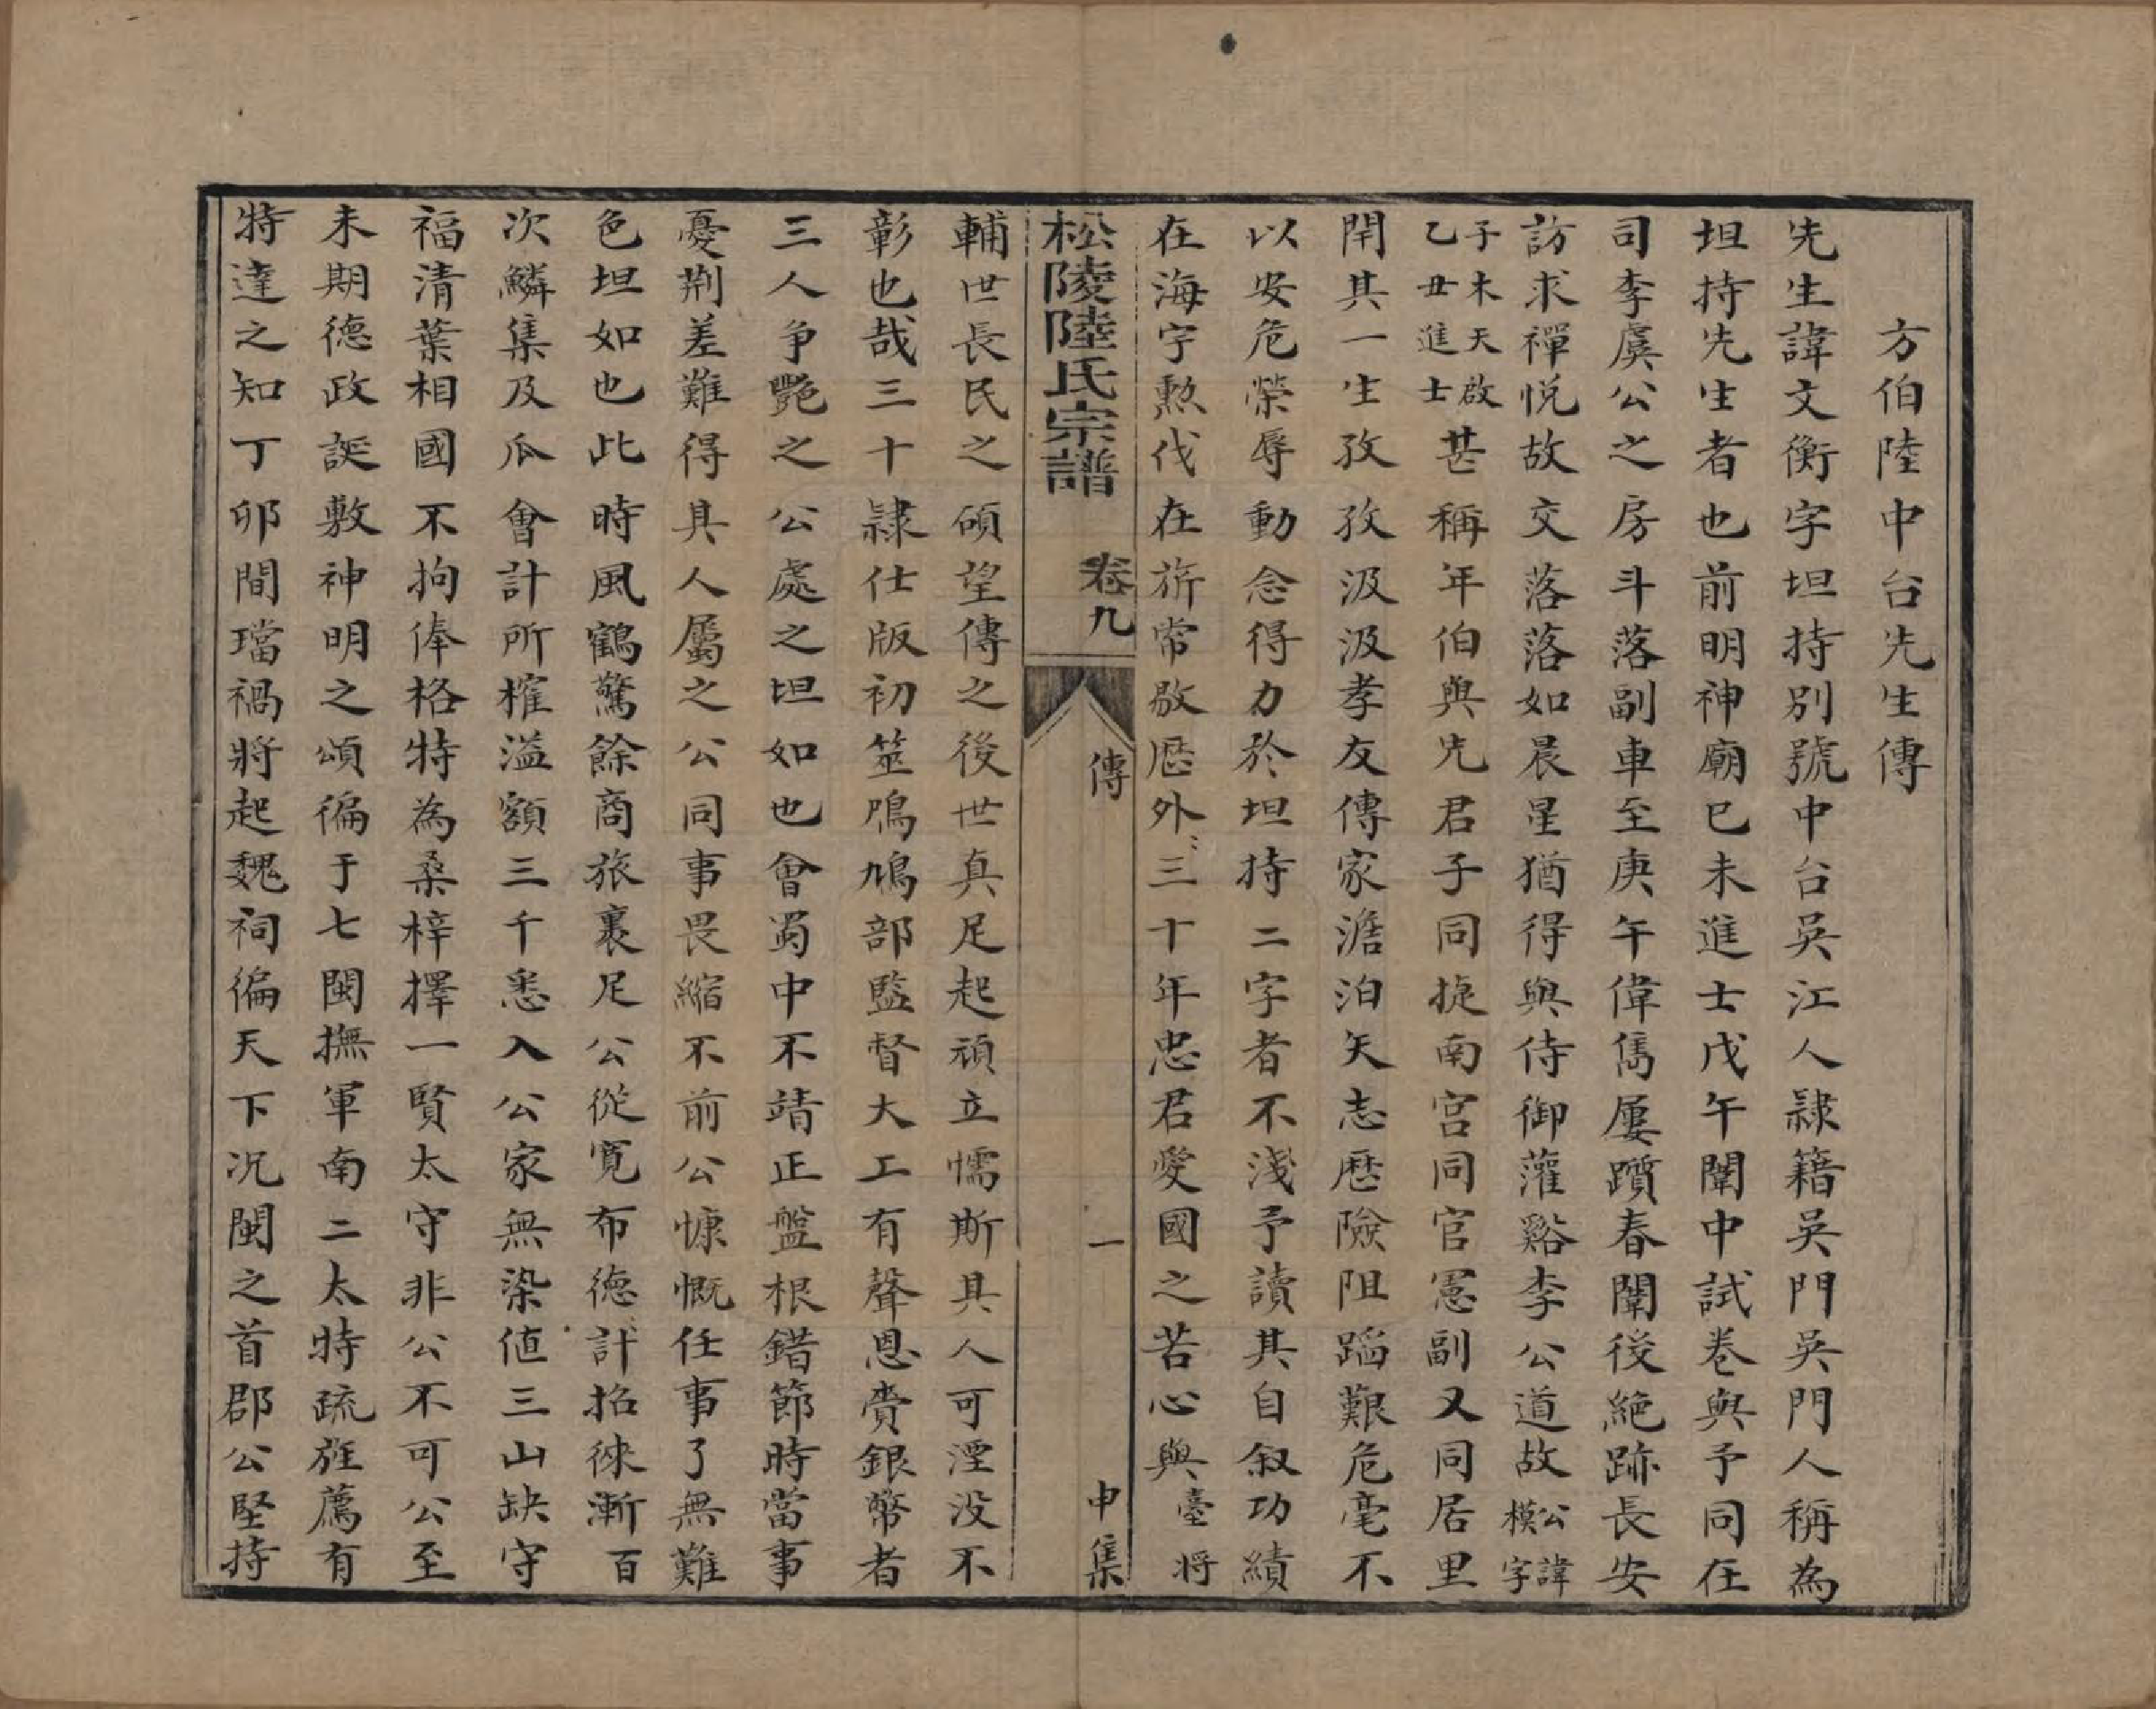 方伯陸中台先生傳
先生諱文衡字坦持別號中台吳江人隸籍吳門吳門人稱為
坦持先生者也前明神廟已未進士戊午闈中試卷與予同在
司李虞公之房斗落副車至庚午偉雋屢躓春闈後絶跡長安
訪求禪悅故交落落如晨星猶得與侍御灌谿李公道故公諱模字
子木天啟乙丑進士甚稱年伯與先君子同捷南宮同官憲副又同居里
閈其一生孜孜汲汲孝友傳家澹泊矢志歷險阻蹈艱危毫不
以安危榮辱動念得力於坦持二字者不淺予讀其自叙功績
在海宇勲伐在旂常敭歷外三十年忠君愛國之苦心與臺將
松陵陸氏宗譜 卷九 傳 一 申集
輔世長民之碩望傳之後世真足起頑立懦斯其人可湮没不
彰也哉三十隸仕版初筮鳲鳩部監督大工有聲恩賚銀幣者
三人争艷之公處之坦如也會蜀中不靖正盤根錯節時當事
憂荆差難得其人屬之公同事畏縮不前公慷慨任事了無難
色坦如也此時風鶴驚餘商旅裹足公從寛布德計招徠漸百
次鱗集及瓜會計所榷溢額三千悉入公家無染值三山缺守
福清葉相國不拘俸格特為桑梓擇一賢太守非公不可公至
未期德政誕敷神明之頌徧于七閩撫軍南二太特疏旌薦有
特達之知丁卯間璫禍將起魏祠徧天下况閩之首郡公堅持